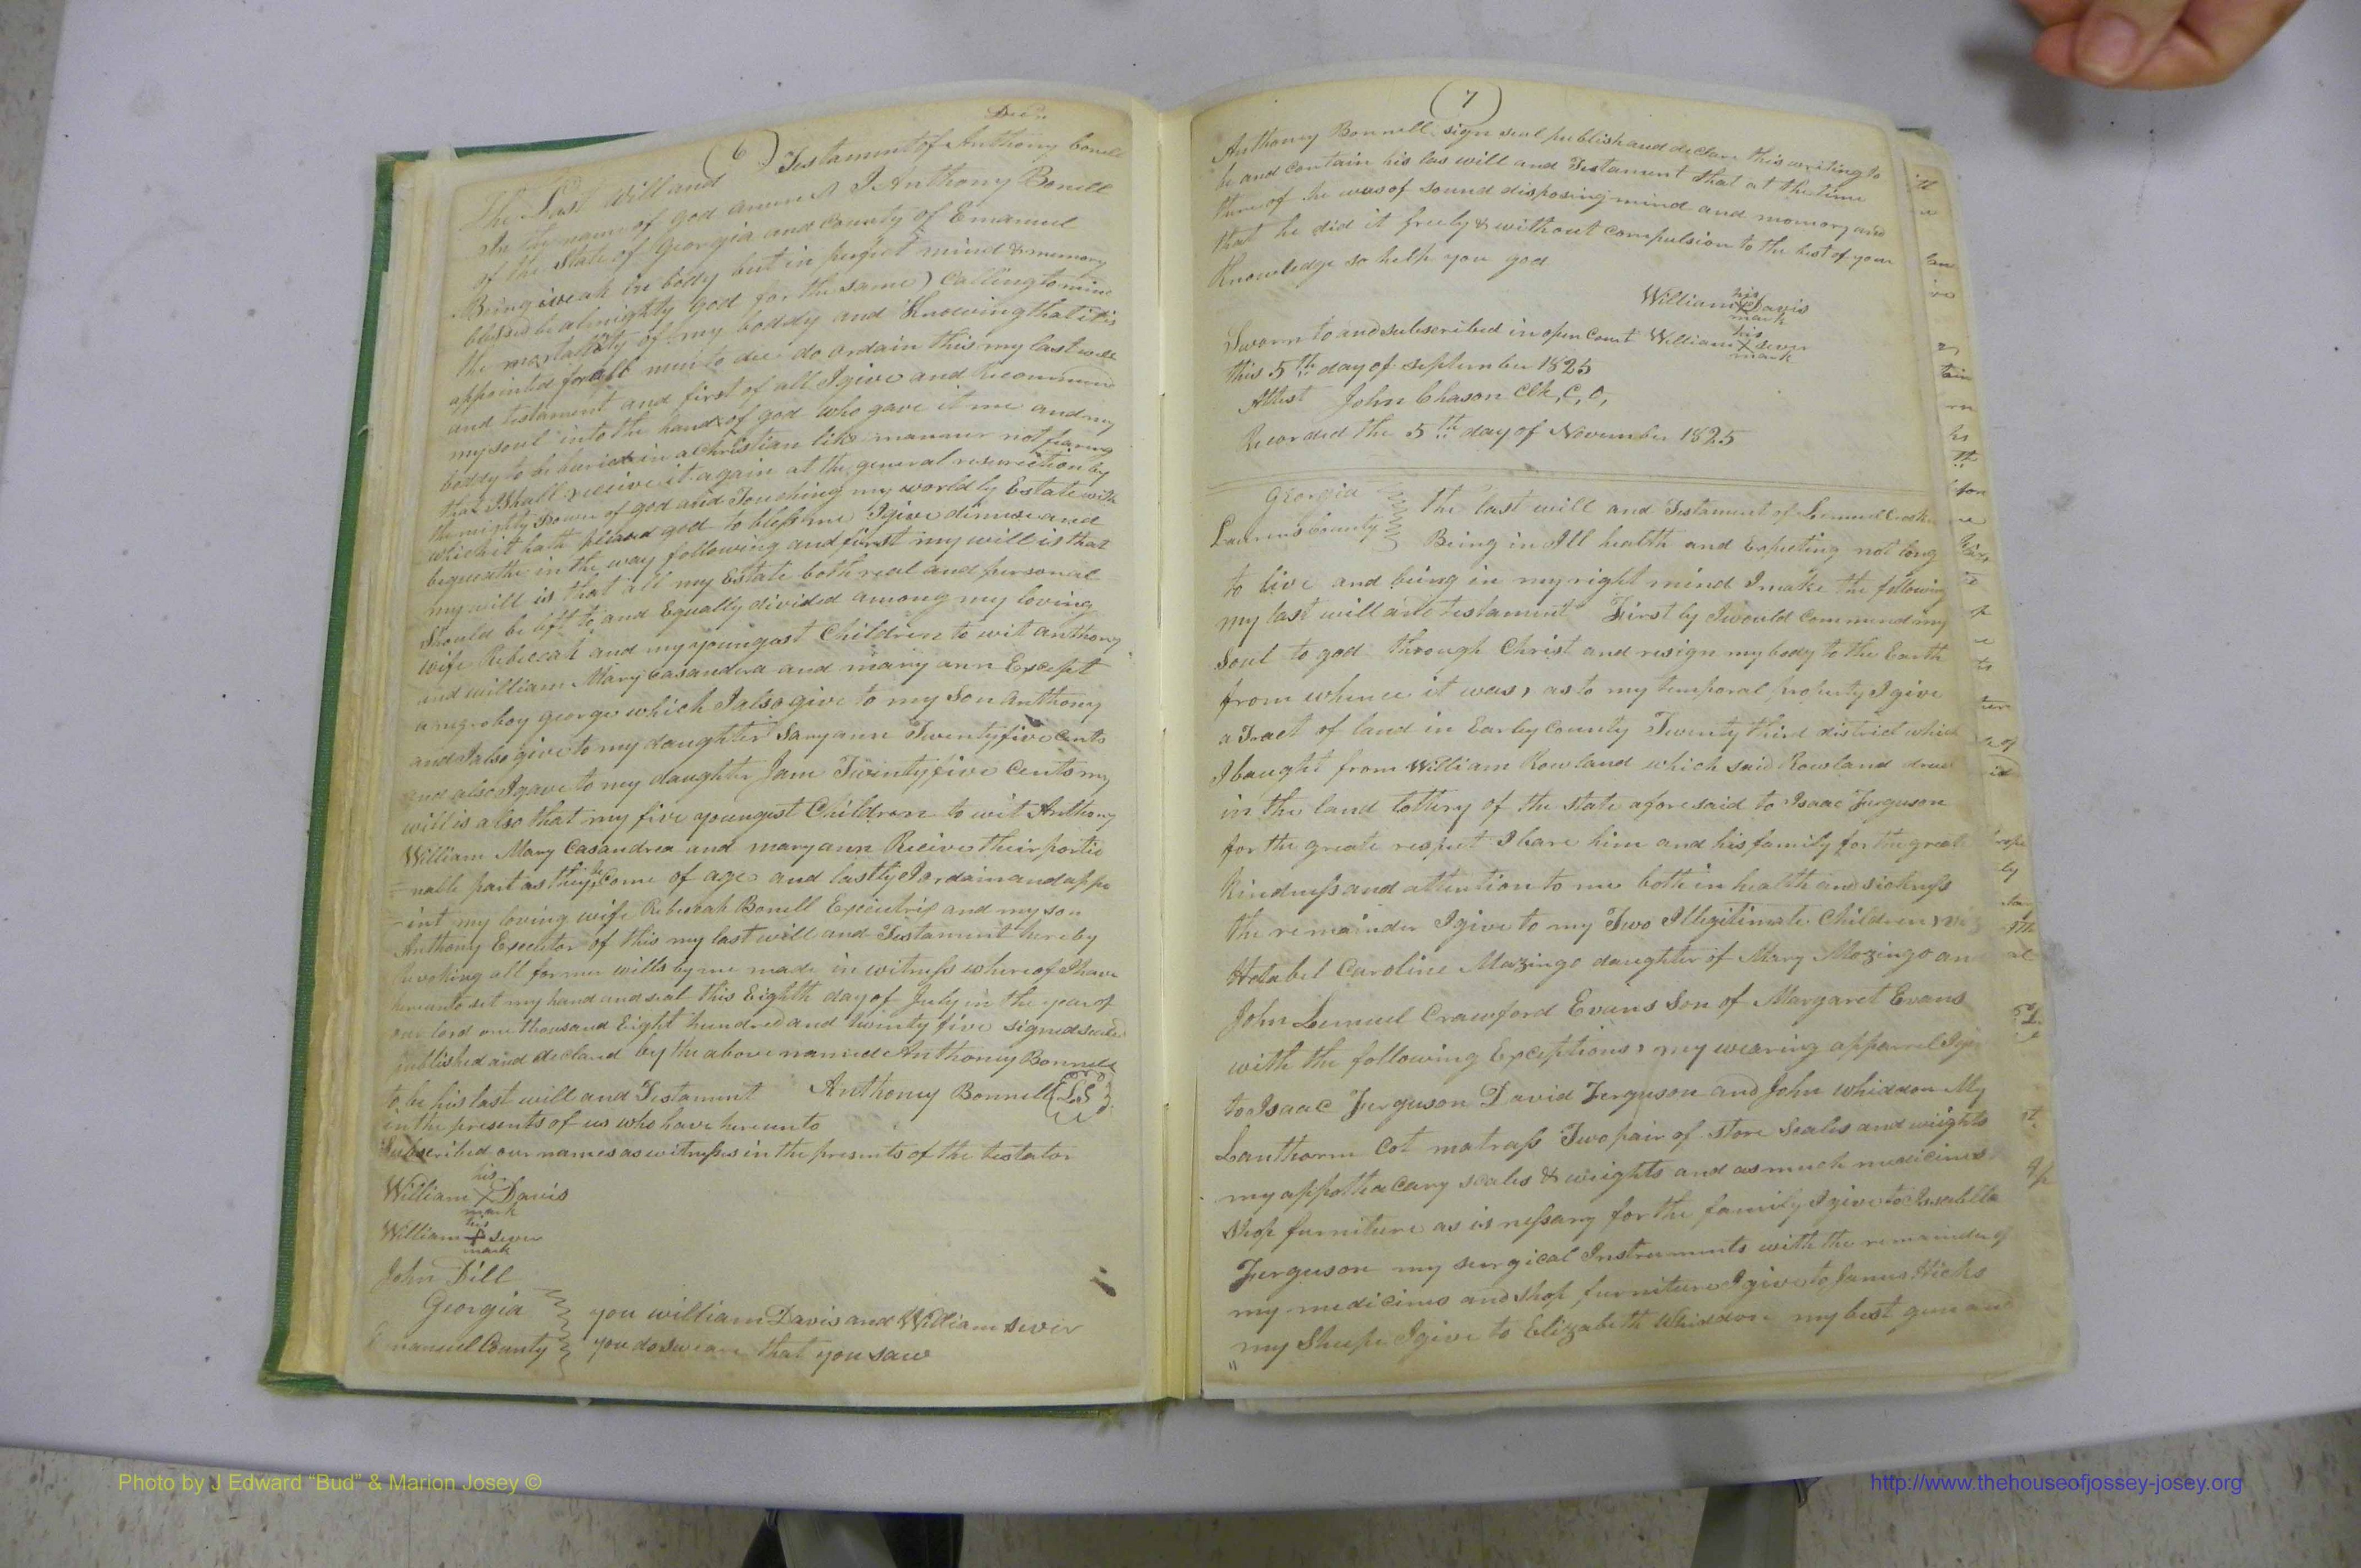 Decd.
(6)
The Last Will and Testament of Anthony bonell
In the name of god amen I Anthony Bonell
of the State of Georgia and County of Emanuel
Being weak in body but in perfect mind & memory
blessed be almighty god for the same) Calling to mind
the mortallity of my boddy and Knowing that it is
appointed for all men to die do ordain this my last will
and testament and first of all I give and Recommend
my soul into the hands of god who gave it me and my
boddy to be buried in a Christian like manner not fearing
that I shall receive it again at the general resurection by
the mighty power of god and Touching my worldly Estate with
which it hath pleased god to bless me I give demise and
bequeathe in the way following and furst my will is that
my will is that all my Estate both real and personal
Should be left to and Equally divided among my loving
wife Rebeccah and my youngest Children to wit anthony
and william Mary Casandra and mary ann Except
a negro boy george which I also give to my Son anthony
and I also give to my daughter Saryann Twentyfive Cents
and also I gave to my daughter Jane Twentyfive Cents my
will is also that my five youngest Children to wit Anthony
William Mary Casandrea and maryann Receive their portio
=nable part as they be Come of age and lastly I ordain and appo
=int my loving wife Rebecah Bonell Executrix and my son
Anthony Executor of this my last will and Testament hereby
Revoking all former wills by me made in witness whereof I have
hereunto set my hand and seal this Eighth day of July in the year of
our lord one thousand Eight hundred and twenty five signed sealed
published and declard by the above named Anthony Bonnell
to be his last will and Testament Anthony Bonnell (LS)
in the presents of us who have hereunto
Subscribed our names as witnesses in the presents of the testator
his
William X Davis
mark
his
William + sever
mark
John Dill
Georgia
Emanuel County you william Davis and William sever
you do sweare that you saw
(7)
Anthoney Bonnell sign seal publish and declare this writing to
be and contain his las will and Testament that at the time
thereof he was of sound disposing mind and momory and
that he did it freely & without compulsion to the best of your
Knowledge so help you god
his
William X Davis
mark
Sworn to and subscribed in open Court William X sever
his
mark
this 5th day of september 1825
Attest John Chason Clk, C, O,
Recorded the 5th day of November 1825
Georgia
Laurens County The last will and Testament of Lemuel
Being in Ill health and Expecting not long
to live and being in my right mind I make the following
my last will and testament First by I would Commend my
Soul to god through Christ and resign my body to the Earth
from whence it was, as to my temporal property I give
a Tract of land in Early County Twenty third district which
I baught from William Rowland which said Rowland drew
in the land lottery of the state aforesaid to Isaac Ferguson
for the greate respect I bare him and his family for the great
Kindness and attention to me both in health and sickness
the remainder I give to my Two Illegitimate Children
Caroline Mazingo daughter of Mary Mozingo an
John Lemuel Crawford Evans Son of Margaret Evans
with the following Exceptions, my wearing apparrel I give
to Isaac Ferguson David Ferguson and John whiddon My
Lanthorn Cot matrass Two pair of store Scales and weights
my appothacary scales & weights and as much medicines
Shop furniture as is nessary for the family I give to Issabella
Ferguson my surgical Instruments with the remainder of
my medicines and shop furniture I give to James Hicks
my Sheepe I give to Elizabeth Whiddon my best gun and
Photo by J Edward “Bud” & Marion Josey ©
http://www.thehouseofjossey-josey.org